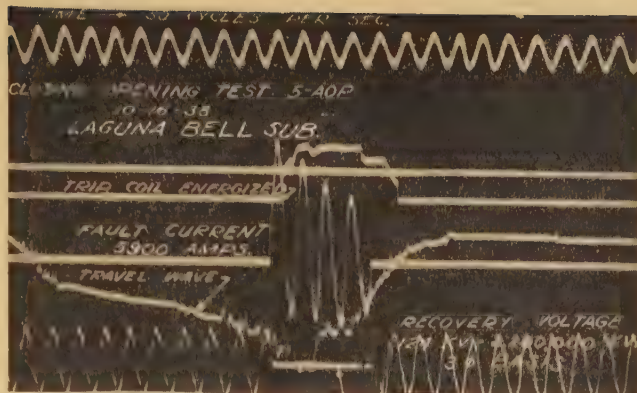 TIME - 50 CYCLES PER SEC.
CLOSING OPENING TEST 5-AOP
10-16-38
LAGUNA BELL SUB.
TRIP COIL ENERGIZED
FAULT CURRENT
5900 AMPS.
TRAVEL WAVE
RECOVERY VOLTAGE